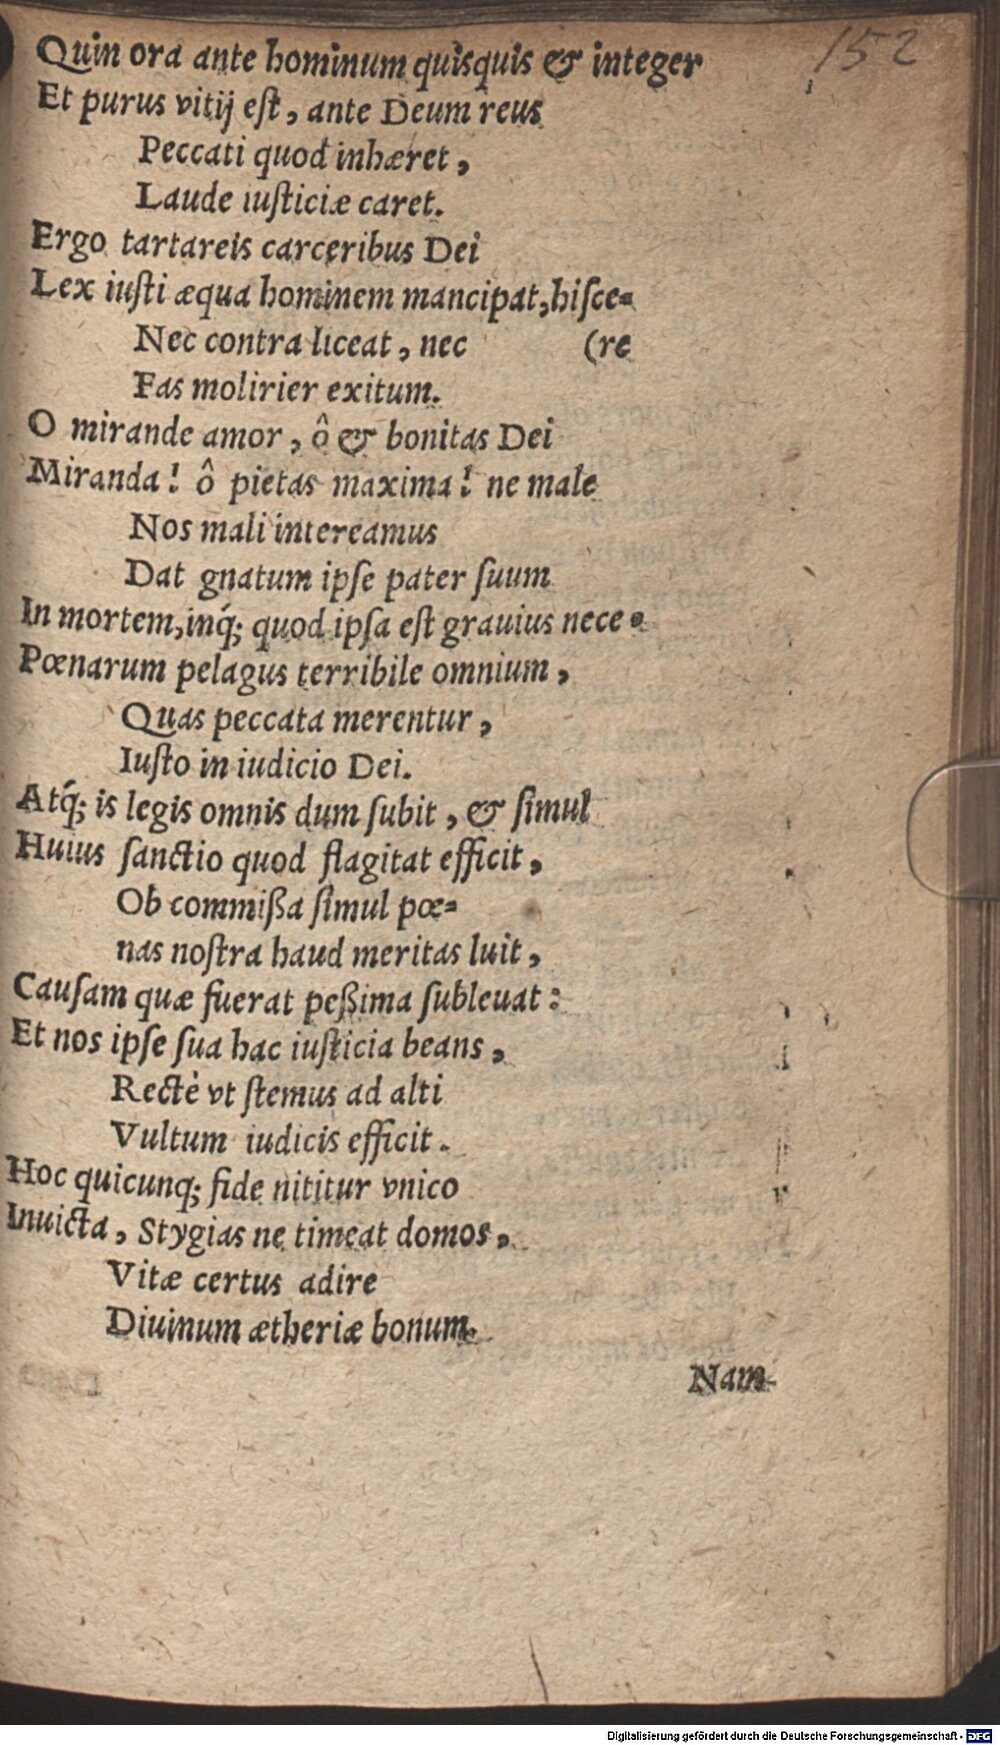 152
Quin ora ante hominum quisquis & integer
Et purus vitij eſt, ante Deum reus
Peccati quod inhæret,
Laude iuſticiæ caret.
Ergo tartareis carceribus Dei
Lex iuſti æqua hominem mancipat, hiſce=
Nec contra liceat, nec (re
Fas molirier exitum.
O mirande amor, ô & bonitas Dei
Miranda! ô pietas maxima! ne male
Nos mali intereamus
Dat gnatum ipſe pater ſuum
In mortem, inq́; quod ipſa eſt grauius nece
Pœnarum pelagus terribile omnium,
Quas peccata merentur,
Iuſto in iudicio Dei.
Atq́; is legis omnis dum ſubit, & ſimul
Huius ſanctio quod flagitat efficit,
Ob commißa ſimul pœ=
nas noſtra haud meritas luit,
Cauſam quæ fuerat peßima ſubleuat:
Et nos ipſe ſua hac iuſticia beans,
Rectè vt ſtemus ad alti
Vultum iudicis efficit.
Hoc quicunq; fide nititur vnico
Inuicta, Stygias ne timeat domos,
Vitæ certus adire
Diuinum ætheriæ bonum.
Nam
Digitalisierung gefördert durch die Deutsche Forschungsgemeinschaft - DFG